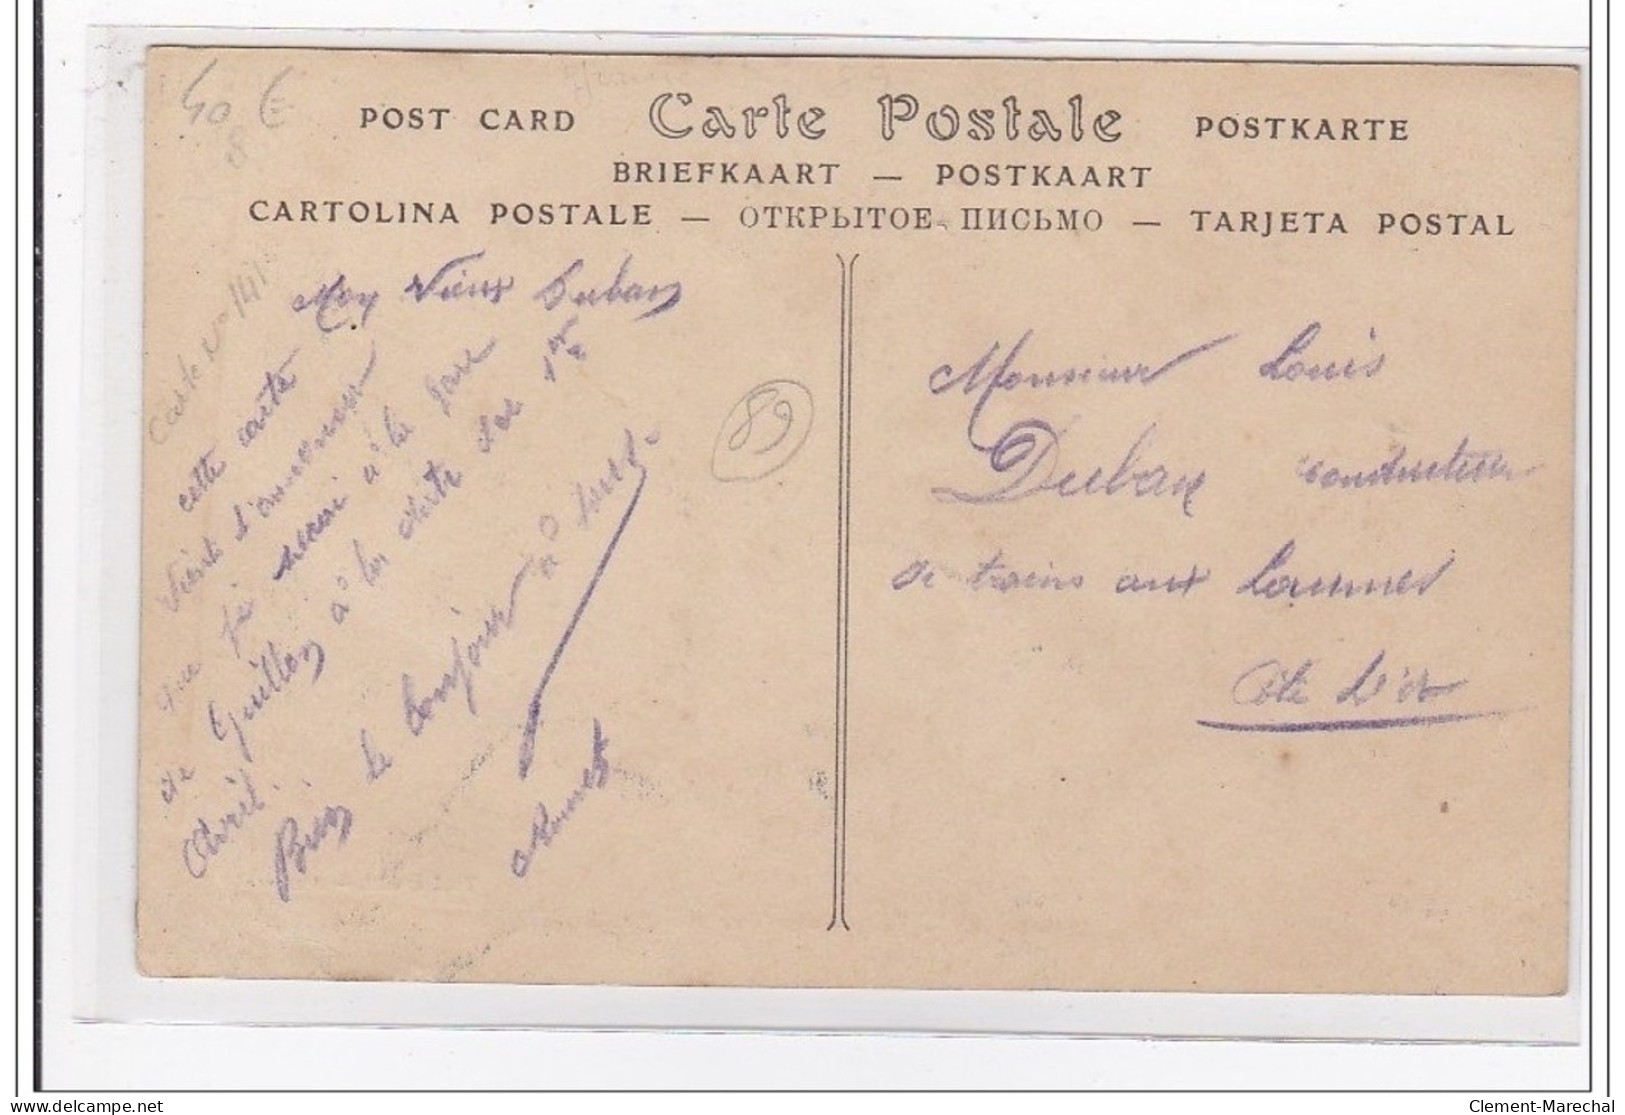 40 €
8
POST CARD Carte Postale POSTKARTE
BRIEFKAART — POSTKAART
CARTOLINA POSTALE — ОТКРЫТОЕ ПИСЬМО — TARJETA POSTAL
Carte N° 141
Mon Vieux Duban
cette carte
vient t'annoncer
que je serai à la gare
de Guillon à la date du 1er
Avril.
Bien le bonjour à tous.
89
Monsieur Louis
Duban conducteur
de trains aux Laumes
Côte d'or
Clement-Marechal
delcampe.net